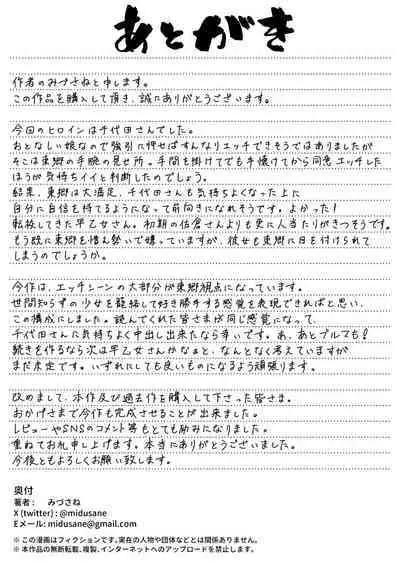 あとがき
作者のみづさねと申します。
この作品を購入して頂き、誠にありがとうございます。
今回のヒロインは千代田さんでした。
おとなしい娘なので強引に押せばすんなりエッチできそうではありましたが
そこは東郷の手腕の見せ所。手間を掛けてでも手懐けてから同意エッチした
ほうが気持ちイイと判断したのでしょう。
結果、東郷は大満足、千代田さんも気持ちよくなった上に
自分に自信を持てるようになって前向きになれそうです。よかった!
転校してきた早乙女さん。初期の佐倉さんよりも更に人当たりがきつそうです。
もう既に東郷を憎ん勢いで嫌っていますが、彼女も東郷に目を付けられて
しまうのでしょうか。
今作は、エッチシーンの大部分が東郷視点になっています。
世間知らずの少女を籠絡して好き勝手する感覚を表現できればと思い、
この構成にしました。読んでくれた皆さまが同じ感覚になって、
千代田さんに気持ちよく中出し出来たなら幸いです。あ、あとブルマも!
続きを作るなら次は早乙女さんかなぁと、なんとなく考えていますが
まだ未定です。いずれにしても良いものになるよう頑張ります。
改めまして、本作及び過去作を購入して下さった皆さま。
おかげさまで今作も完成させることが出来ました。
レビューやSNSのコメント等もとても励みになりました。
重ねてお礼申し上げます。本当にありがとうございました。
今後ともよろしくお願い致します。
奥付
著者: みづさね
X (twitter) : @midusane
Eメール: midusane@gmail.com
※この漫画はフィクションです。実在の人物や団体などとは関係ありません。
※本作品の無断転載、複製、インターネットへのアップロードを禁止します。